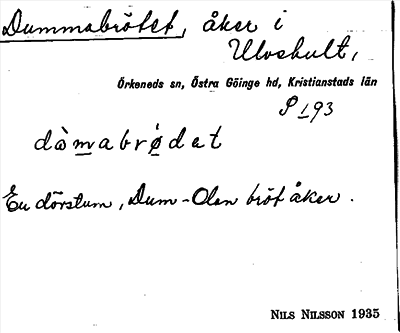 Dummabrötet, åker i
Ulvshult,
Örkeneds sn, Östra Göinge hd, Kristianstads län
P 193
dàmabrǿdet
En dörstum, Dum-Olan bröt åker.
NILS NILSSON 1935